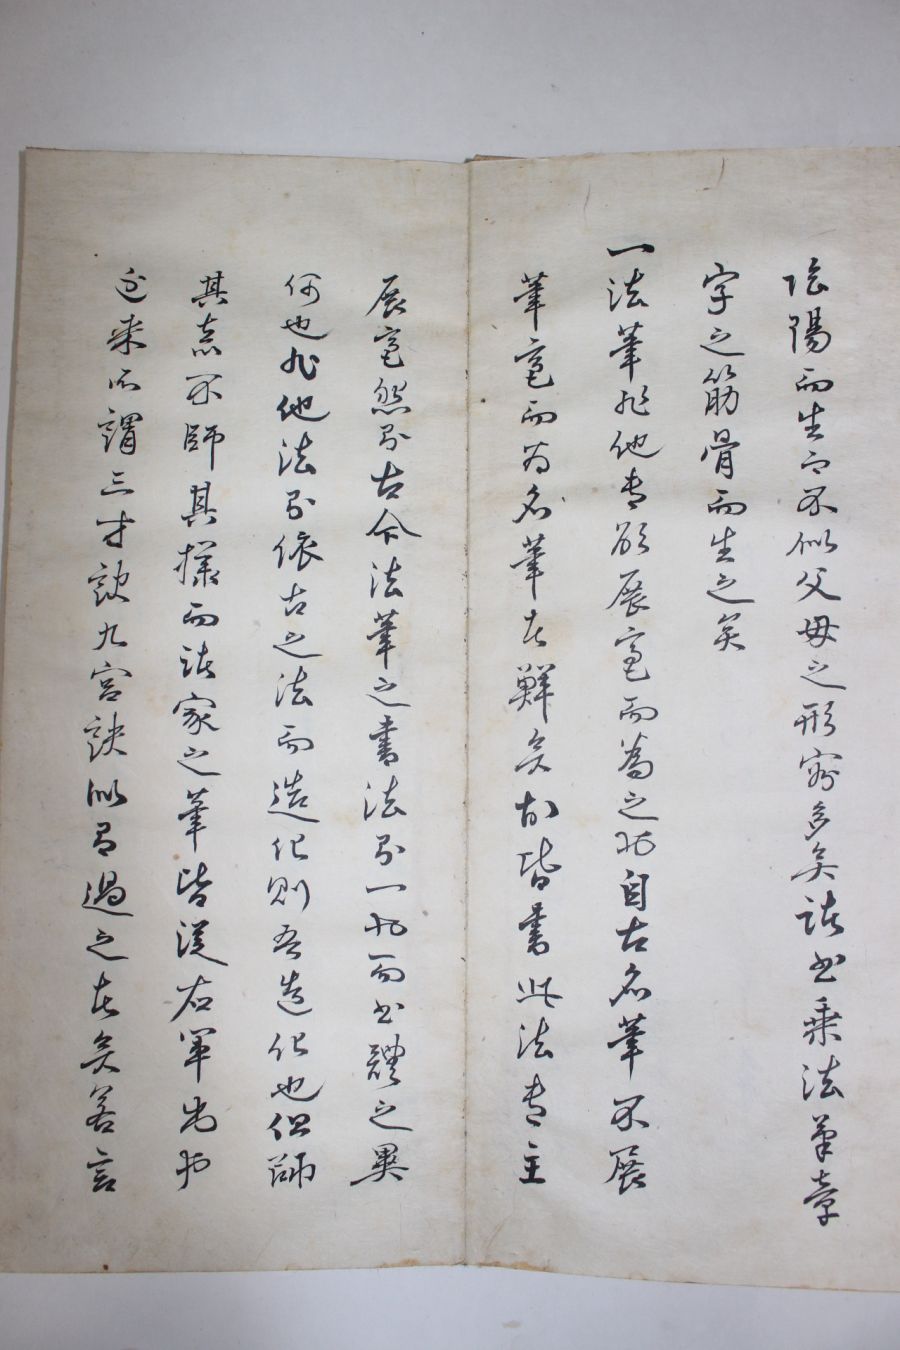 陰陽而生而不似父母之形容多矣諸書乘法筆章
字之筋骨而生之矣
一法筆非他专欲展毫而為之也自古名筆不展
筆毫而为名筆者鮮矣故皆書此法专主
展毫然則古今法筆之書法則一也而書體之異
何也非他法則依古之法而造化則吾造化也但師
其意不師其樣而諸家之筆皆從右軍出也
近来所謂三才訣九宮訣似有過之者矣若言